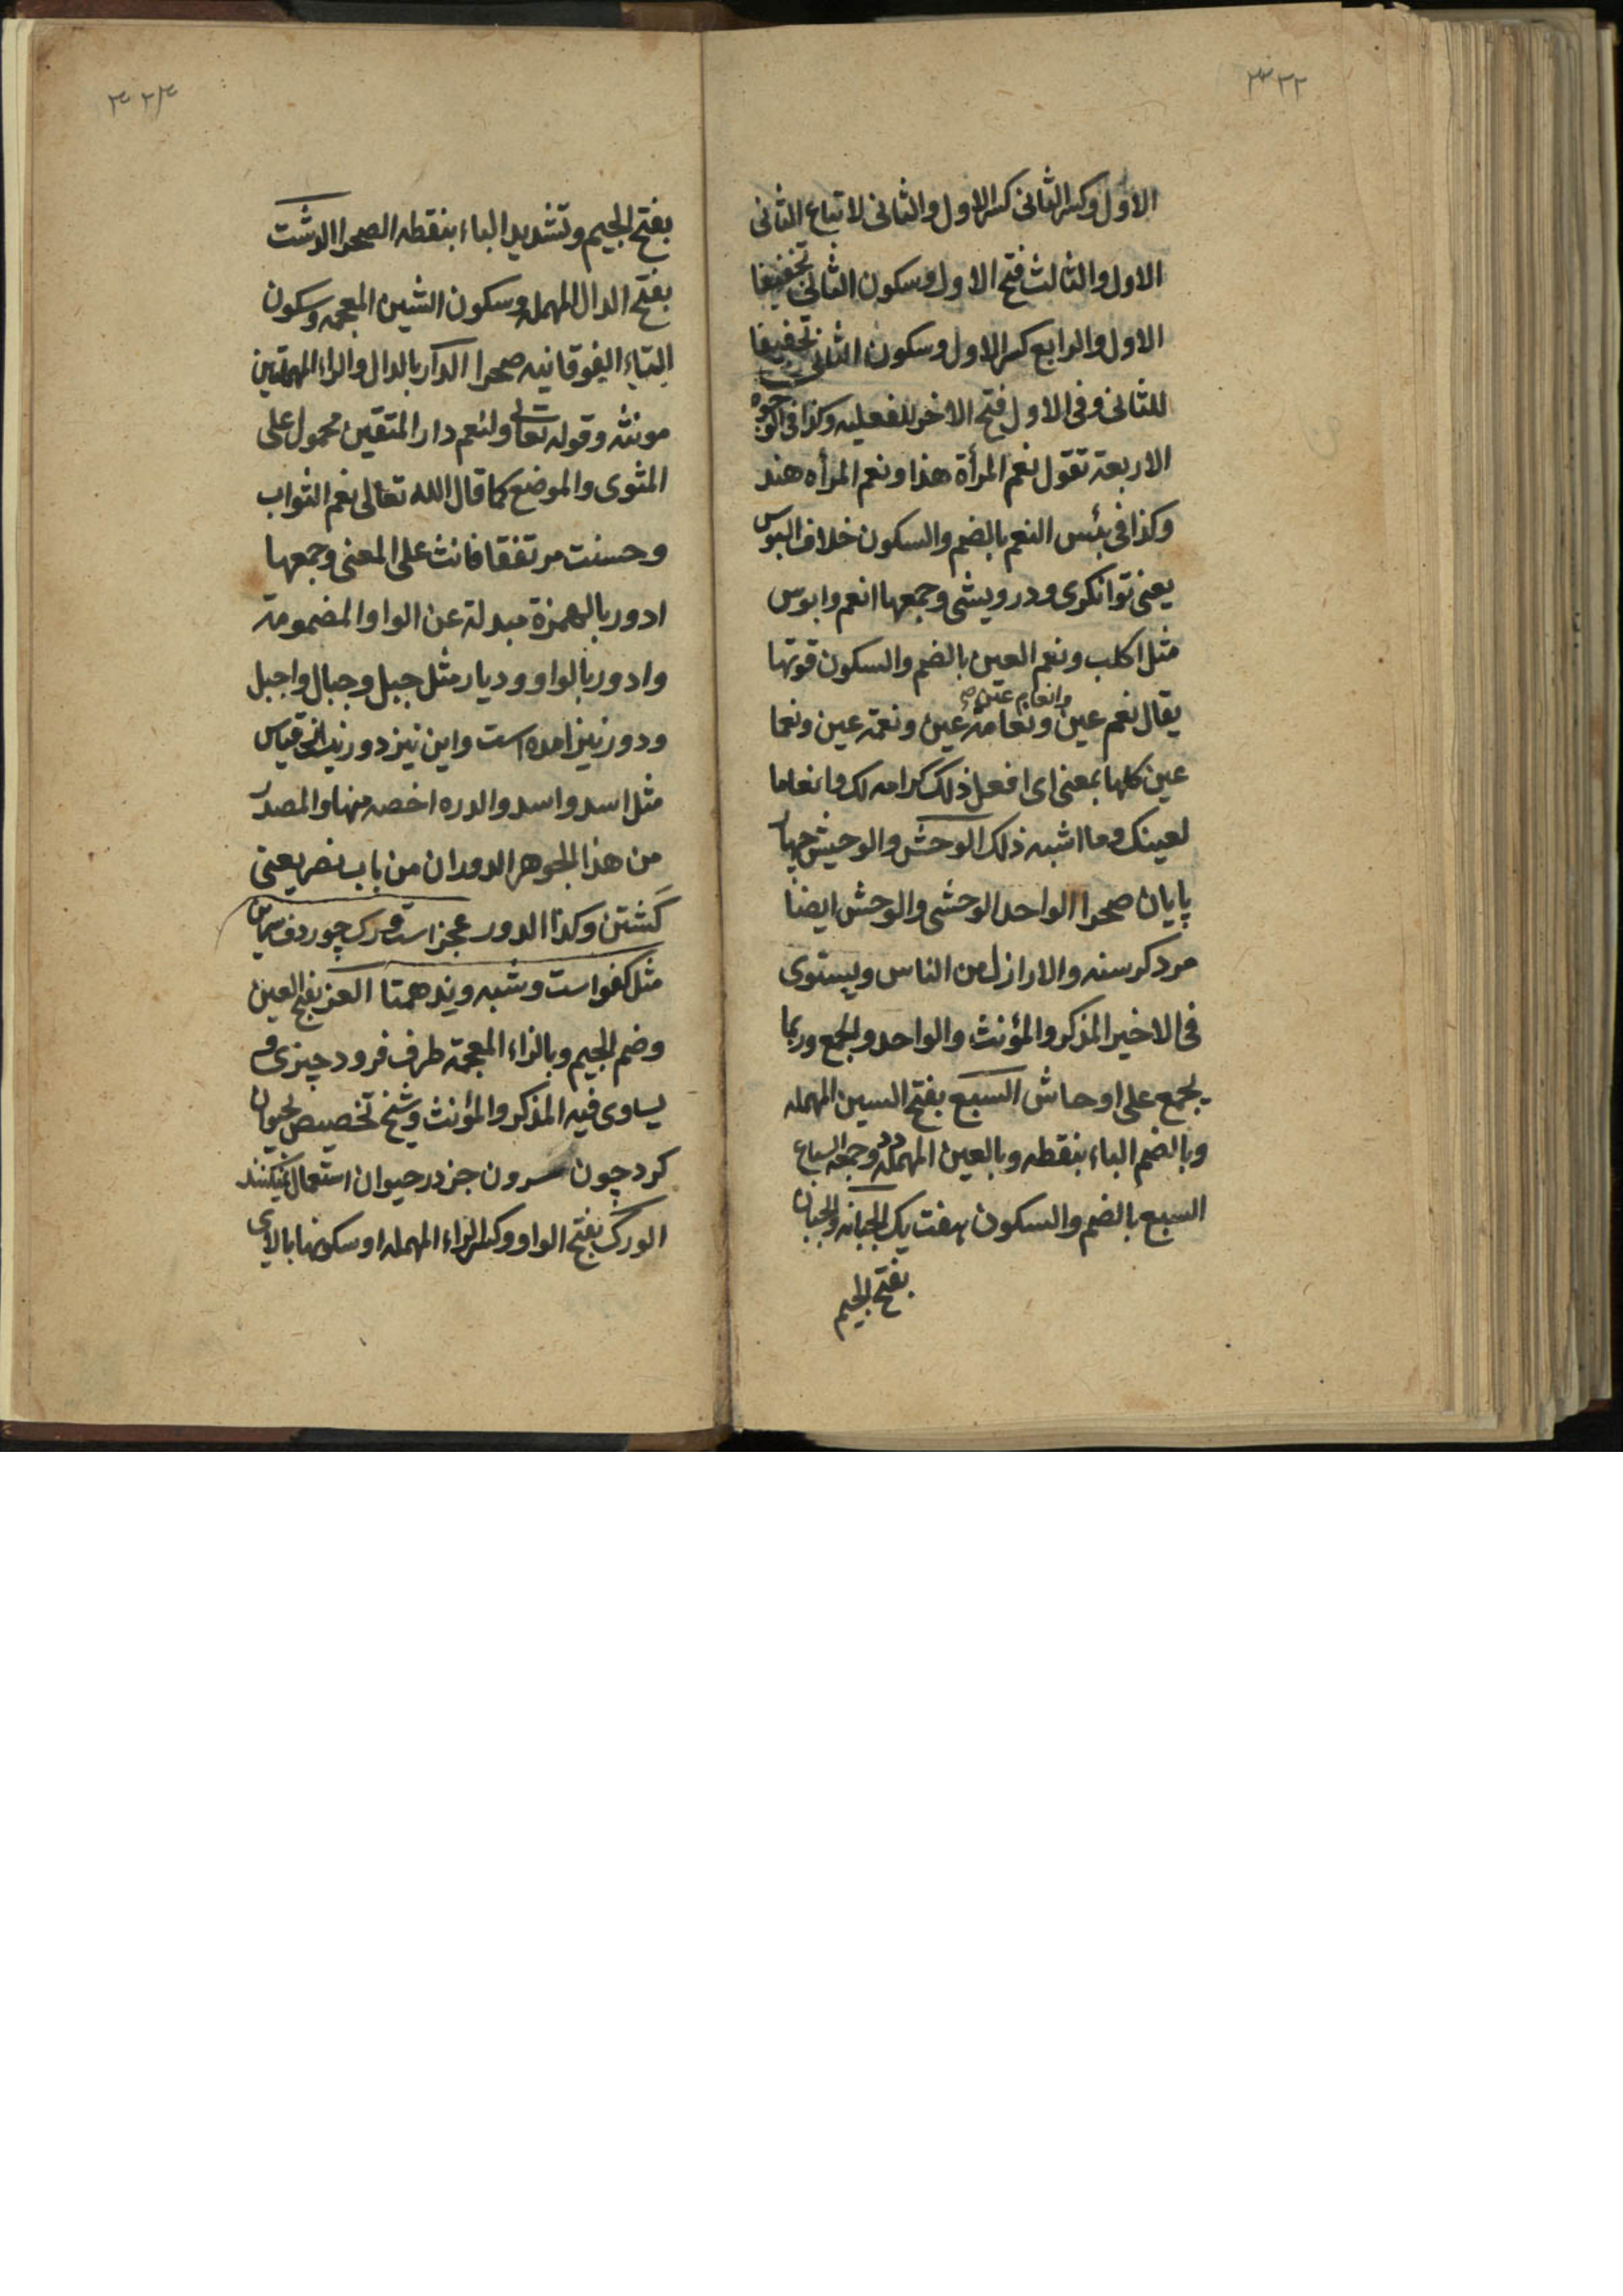 ۳۳۲
الاول وكسر الثانى كسر الاول والثانى لاتباع الثانى
الاول والثالث فتح الاول وسكون الثانى تخفيفا
الاول والرابع كسر الاول وسكون الثانى تخفيفا
للثانى وفى الاول فتح الاخر للفعليه وكذا فى الوجوه
الاربعة تقول نعم المرأة هذا ونعم المرأه هند
وكذا فى بئس النعم بالضم والسكون خلاف البوس
يعنى توانكرى ودرويشى وجمعها انعم وابوس
مثل اكلب ونعم العين بالضم والسكون قوتها
وانعام عين صح
يقال نعم عين ونعامة عين ونعمة عين ونعما
عين كلها بمعنى اى افعل ذلك كرامه لك وانعاما
لعينك وما اشبه ذلك الوحش والوحيش چهار
پايان صحرا الواحد الوحشى والوحش ايضا
مرد كرسنه والاراذل من الناس ويستوى
فى الاخير المذكر والمؤنث والواحد والجمع وربما
يجمع على اوحاش السبع بفتح السين المهمله
وبالضم الباء بنقطه وبالعين المهمله دد وجمعه السباع
السبع بالضم والسكون هفت يك الجبانه والجبان
بفتح الجيم
بفتح الجيم وتشديد الباء بنقطه الصحرا الدشت
بفتح الدال المهمله وسكون الشين المعجمه وسكون
التاء الفوقانيه صحرا الدار بالدال والراء المهملتين
مونثه وقوله تعالى ولنعم دار المتقين محمول على
المثوى والموضع كما قال الله تعالى نعم الثواب
وحسنت مرتفقا فانث على المعنى وجمعها
ادور بالهمزة مبدلة عن الواو المضمومة
وادور بالواو وديار مثل جبل وجبال واجبل
ودور نيز امده است واين نيز دور نيست از قياس
مثل اسد واسد والدره اخصه منها والمصدر
من هذا الجوهر الدوران من باب نصر يعنى
كشتن وكذا الدور عجز است ورك چو ردف سپاس
مثل كفو است وشبه وند همتا العجز بفتح العين
وضم الجيم وبالزاء المعجمة طرف فرود چيزى و
يساوى فيه المذكر والمؤنث وشيخ تخصيص بحيوان
كرد چون سرون جز در حيوان استعمال نميكنند
الورك بفتح الواو وكسر الراء المهمله او سكونها بالاى